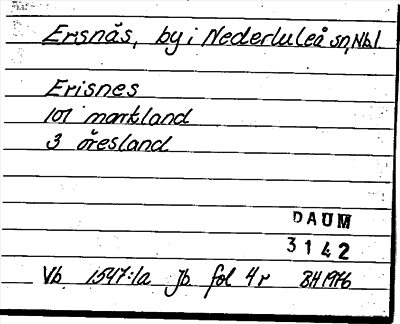 Ersnäs, by i Nederluleå sn, Nbl.
Erisnes
101 markland
3 öresland
DAUM
3142
Vb. 1547:1a Jb. fol 4 r BH 1976